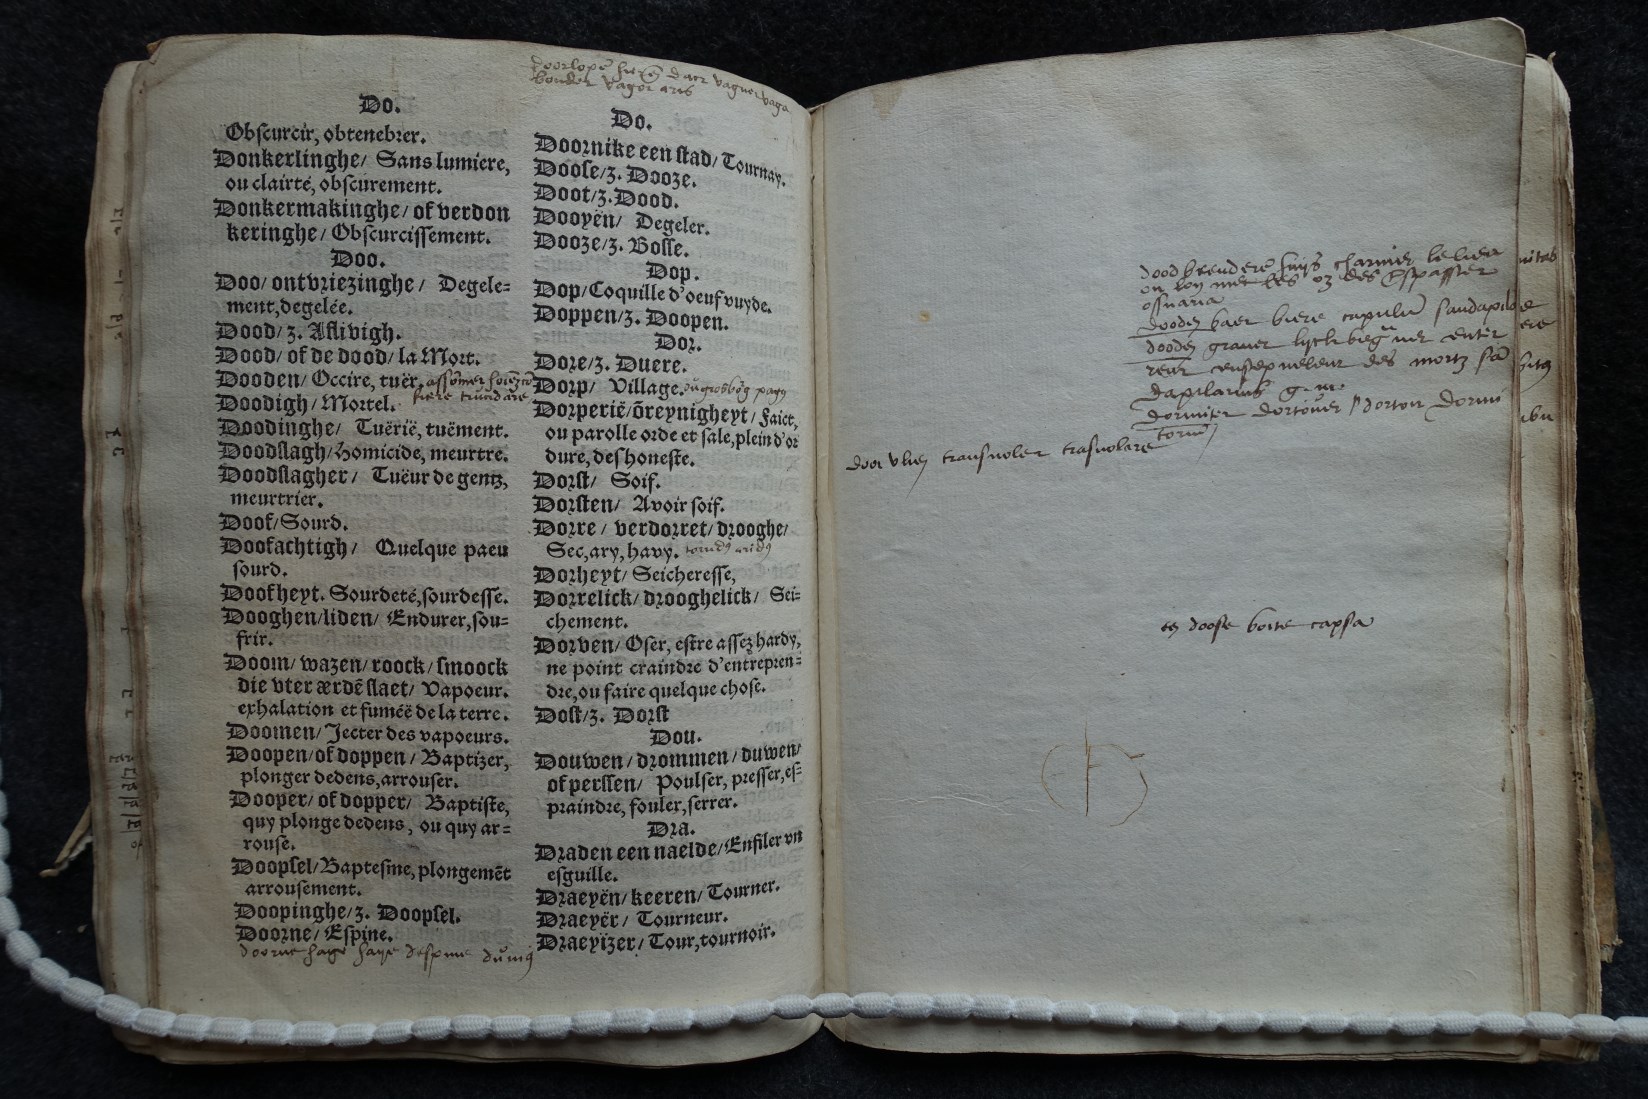 Do.
Obscurcir, obtenebrer.
Donkerlinghe/ Sans lumiere,
ou clairté, obscurement.
Donkermakinghe/ of verdon
keringhe/ Obscurcissement.
Doo.
Doo/ ontvriezinghe/ Degele=
ment, degelée.
Dood/ z. Aflivigh.
Dood/ of de dood/ la Mort.
Dooden/ Occire, tuër.
Doodigh/ Mortel.
Doodinghe/ Tuërië, tuëment.
Doodslagh/ Homicide, meurtre.
Doodslagher/ Tuëur de gentz,
meurtrier.
Doof/ Sourd.
Doofachtigh/ Quelque paeu
sourd.
Doofheyt. Sourdeté, sourdesse.
Dooghen/liden/ Endurer, sou=
frir.
Doom/ wazen/ roock/ smoock
die vter ærdē slaet/ Vapoeur.
exhalation et fuméë de la terre.
Doomen/ Jecter des vapoeurs.
Doopen/ of doppen/ Baptizer,
plonger dedens, arrouser.
Dooper/ of dopper/ Baptiste,
quy plonge dedens, ou quy ar=
rouse.
Doopsel/ Baptesme, plongemēt
arrousement.
Doopinghe/z. Doopsel.
Doorne/ Espine.
doorne hage haye despine
doorlopē vaguer vaga
bonder vagor aris
Do.
Doornike een stad/ Tournay.
Doose/z. Dooze.
Doot/z. Dood.
Dooyën/ Degeler.
Dooze/z. Bosse.
Dop.
Dop/ Coquille d'oeuf vuyde.
Doppen/z. Doopen.
Dor.
Dore/z. Duere.
Dorp/ Village.
Dorperië/ õreynigheyt/ Faict,
ou parolle orde et sale, plein d'or
dure, deshoneste.
Dorst/ Soif.
Dorsten/ Avoir soif.
Dorre/ verdorret/ drooghe/
Sec, ary, havy.
Dorheyt/ Seicheresse,
Dorrelick/ drooghelick/ Sei=
chement.
Dorven/ Oser, estre assez hardy,
ne point craindre d'entrepren=
dre, ou faire quelque chose.
Dost/z. Dorst
Dou.
Douwen/ drommen/ duwen/
of perssen/ Poulser, presser, es=
praindre, fouler, serrer.
Dra.
Draden een naelde/ Enfiler vn
esguille.
Draeyën/ keeren/ Tourner.
Draeyër/ Tourneur.
Draeyïzer/ Tour, tournoir.
ossuaria
dooden baer biere
dooden graver
des mortz
dormter dortouer dortoir dormi
torium
door vlien transvoler
een doose boite capsa